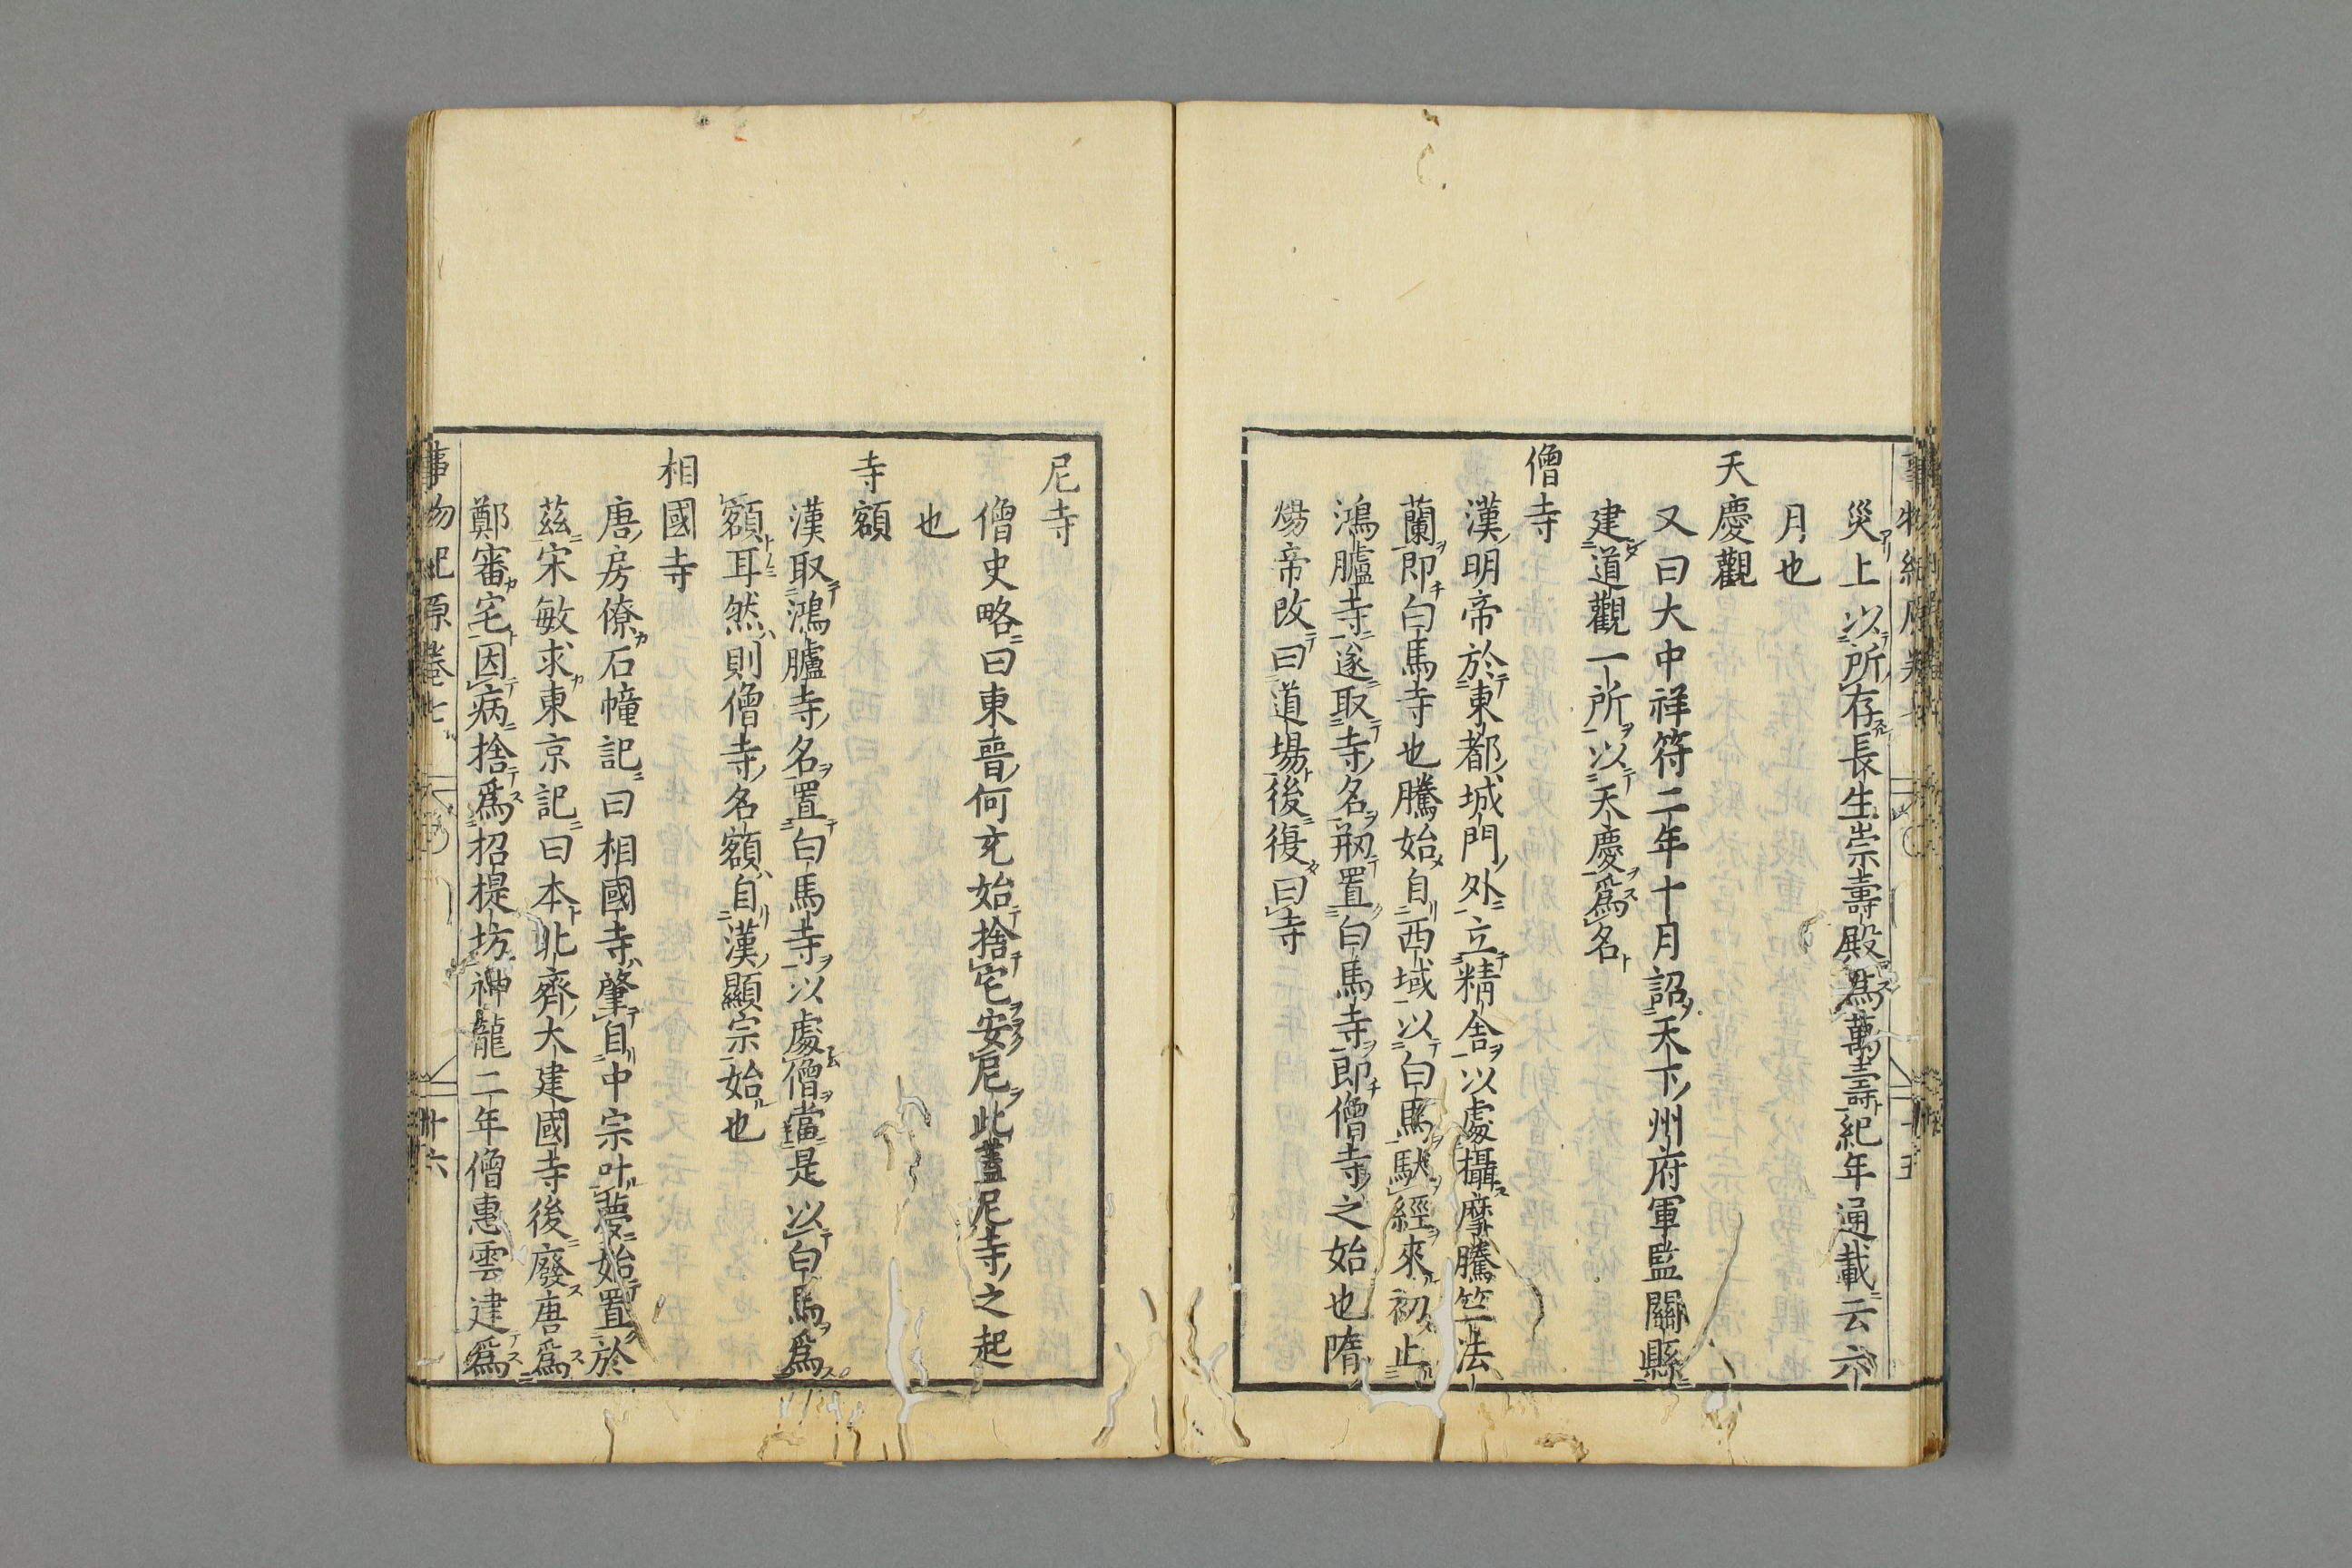 事物紀原卷七
災上以所存長生崇壽殿爲萬壽紀年通載云六
月也
天慶觀
又曰大中祥符二年十月詔天下州府軍監關縣
建道觀一所以天慶爲名
僧寺
漢明帝於東都城門外立精舍以處攝摩騰竺法
蘭即白馬寺也騰始自西域以白馬馱經來初止
鴻臚寺遂取寺名剏置白馬寺即僧寺之始也隋
煬帝改曰道場後復曰寺
尼寺
僧史略曰東晉何充始捨宅安尼此蓋尼寺之起
也
寺額
漢取鴻臚寺名置白馬寺以處僧當是以白馬爲
額耳然則僧寺名額自漢顯宗始也
相國寺
唐房僚石幢記曰相國寺肇自中宗叶夢始置於
茲宋敏求東京記曰本北齊大建國寺後廢唐爲
鄭審宅因病捨爲招提坊神龍二年僧惠雲建爲
事物紀原卷七
十六